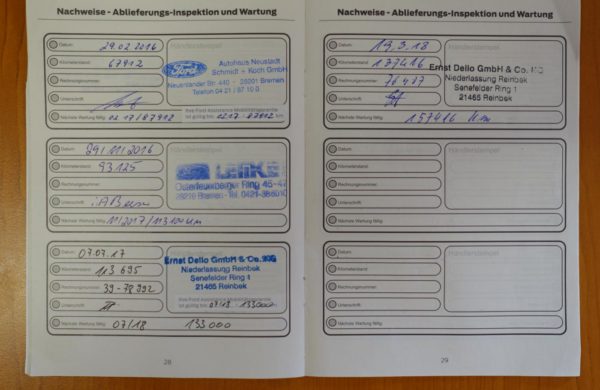 Nachweise - Ablieferungs-Inspektion und Wartung
Datum: 29.02.2016
Kilometerstand: 67912
Rechnungsnummer:
Unterschrift:
Nächste Wartung fällig: 02.17/87912
Händlerstempel
Ford
Autohaus Neustadt
Schmidt + Koch GmbH
Neuenlander Str. 440 - 28201 Bremen
Telefon 04 21 / 87 10 0
Ihre Ford Assistance Mobilitätsgarantie
ist gültig bis: 02.17 - 87912 km
Datum: 29/11/2016
Kilometerstand: 93125
Rechnungsnummer:
Unterschrift:
Nächste Wartung fällig: 11/2017/
Händlerstempel
Osterfeuerberger Ring
Bremen - Tel. 0421-
Datum: 07.07.17
Kilometerstand: 113 695
Rechnungsnummer:
Unterschrift:
Nächste Wartung fällig: 07/18 133000
Ernst Dello GmbH & Co. KG
Niederlassung Reinbek
Senefelder Ring 1
21465 Reinbek
Ihre Ford Assistance Mobilitätsgarantie
ist gültig bis: 07/18 - 133000
28
Nachweise - Ablieferungs-Inspektion und Wartung
Datum: 19.3.18
Kilometerstand: 137416
Rechnungsnummer:
Unterschrift:
Nächste Wartung fällig: 157416 km
Händlerstempel
Ernst Dello GmbH & Co. KG
Niederlassung Reinbek
Senefelder Ring 1
21465 Reinbek
Datum:
Kilometerstand:
Rechnungsnummer:
Unterschrift:
Nächste Wartung fällig:
Händlerstempel
Datum:
Kilometerstand:
Rechnungsnummer:
Unterschrift:
Nächste Wartung fällig:
Händlerstempel
29